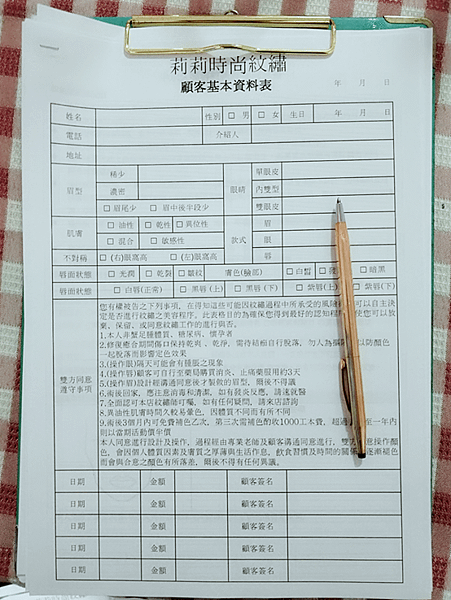 莉莉時尚紋繡
顧客基本資料表
年 月 日
姓名 性別 □ 男 □ 女 生日 年 月 日
電話 介紹人
地址
眉型 稀少 眼睛 單眼皮
濃密 內雙型
□ 眉尾少 □ 眉中後半段少 雙眼皮
肌膚 □ 油性 □ 乾性 □ 異位性 款式 眉
□ 混合 □ 敏感性 眼
不對稱 □ (右)眼窩高 □ (左)眼窩高 唇
唇面狀態 □ 光潤 □ 乾裂 □ 皺紋 膚色(臉部) □ 白皙 □ □ 暗黑
唇面狀態 □ 白唇(正常) □ 黑唇(上) □ 黑唇(下) □ 紫唇(上) □ 紫唇(下)
雙方同意
遵守事項
您有權被告之下列事項，在得知這些可能因紋繡過程中所承受的風險 可以自主決
定是否進行紋繡之美容程序。此表格目的為確保您得到最好的認知程 使您可以放
棄、保留、或同意紋繡工作的進行與否。
1.本人非蟹足腫體質、糖尿病、懷孕者
2.修復癒合期間傷口保持乾爽、乾淨，需待結痂自行脫落，勿人為 以防顏色
一起脫落而影響定色效果
3.(操作眼)隔天可能會有腫脹之現象
4.(操作唇)顧客可自行至藥局購買消炎、止痛藥服用約3天
5.(操作眉)設計經溝通同意後才製做的眉型，爾後不得議
6.術後回家，應注意消毒和清潔，如有發炎反應，請速就醫
7.全面認可本店紋繡師叮囑，如有任何疑問，請來店諮詢
8.異油性肌膚時間久較易暈色，因體質不同而有所不同
9.術後3個月內可免費補色乙次，第三次需補色酌收1000工本費，超過 至一年內
則以當期活動價半價
本人同意進行設計及操作，過程經由專業老師及顧客溝通同意進行，雙方 意操作顏
色，會因個人體質因素及膚質之厚薄與生活作息，飲食習慣及時間的關係 逐漸褪色
而會與合意之顏色有所落差，爾後不得有任何異議。
日期 金額 顧客簽名
日期 金額 顧客簽名
日期 金額 顧客簽名
日期 金額 顧客簽名
日期 金額 顧客簽名